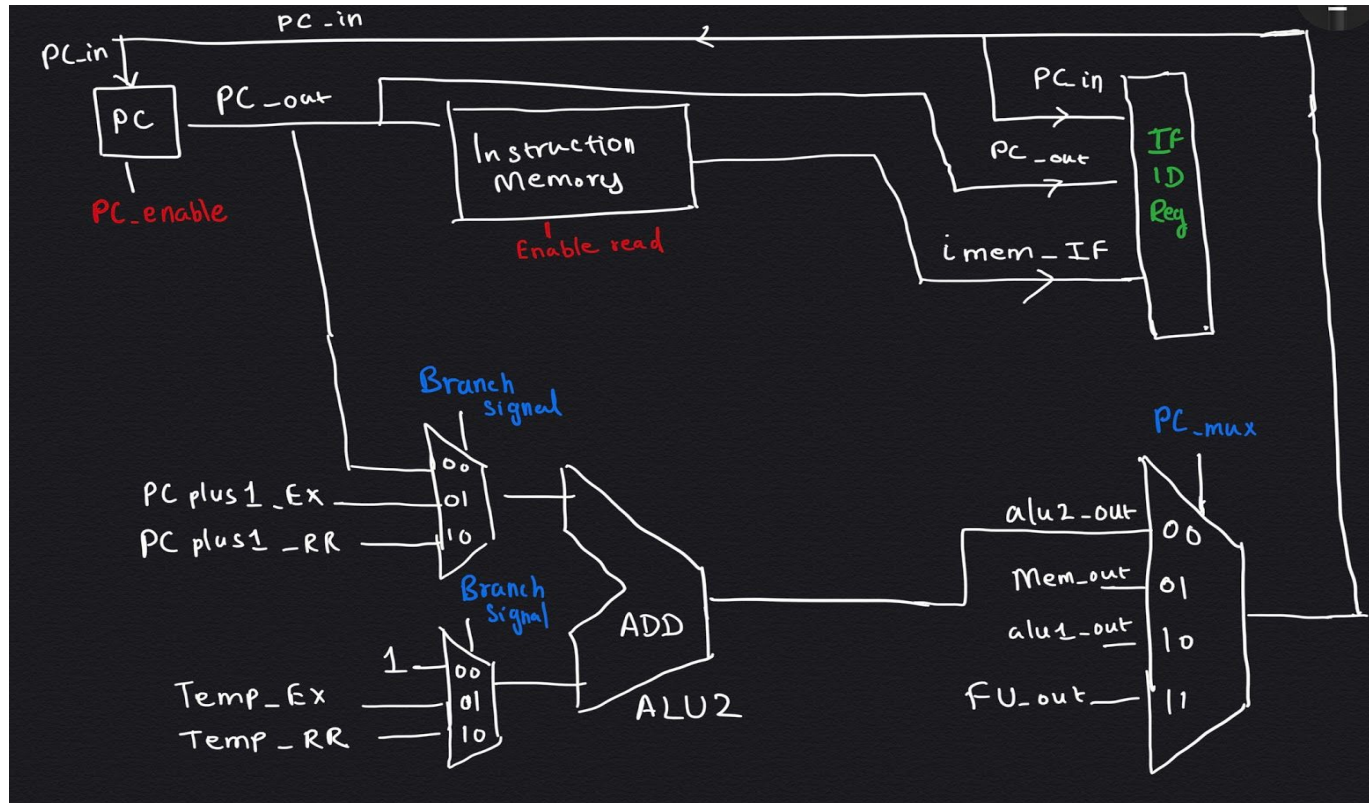 PC_in
PC_in
PC
PC_out
PC_enable
Instruction
Memory
Enable read
PC_in
PC_out
imem_IF
IF
ID
Reg
Branch
signal
PC plus1_Ex
PC plus1_RR
00
01
10
Branch
Signal
1
Temp_Ex
Temp_RR
00
01
10
ADD
ALU2
PC_mux
alu2_out
Mem_out
alu1_out
FU_out
00
01
10
11